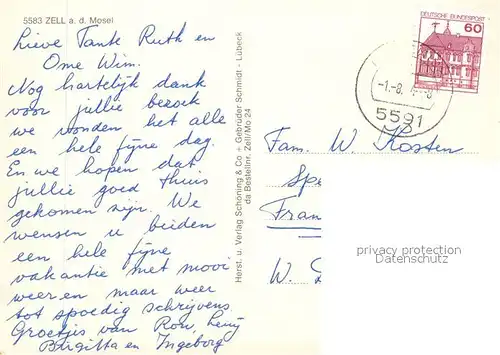 5583 ZELL a. d. Mosel
Lieve Tante Ruth en
Ome Wim.
Nog hartelijk dank
voor jullie bezoek
we vonden het alle
een hele fijne dag.
En we hopen dat
jullie goed thuis
gekomen zijn. We
wensen u beiden
een hele fijne
vakantie met mooi
weer en maar weer
tot spoedig schrijvens
Groetjes van Ron, Leny
Birgitta en Ingeborg
Herst. u. Verlag Schöning & Co + Gebrüder Schmidt - Lübeck
da Bestellnr. Zell/Mo 24
DEUTSCHE BUNDESPOST
60
5591
Fam. W. Kosten
Spe
Fran
W. D
privacy protection
Datenschutz